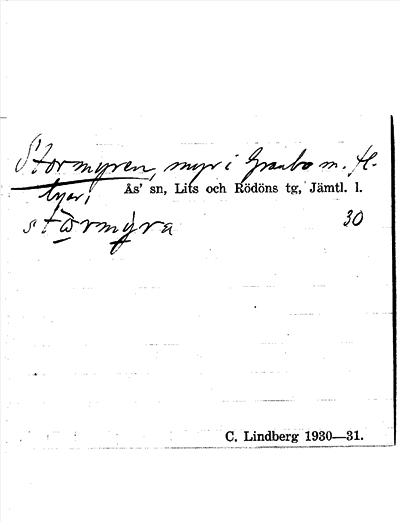 Stormyren, myr i Granbo m. fl.
byar,
Ås' sn, Lits och Rödöns tg, Jämtl. l.
stωrmyra 30
C. Lindberg 1930—31.